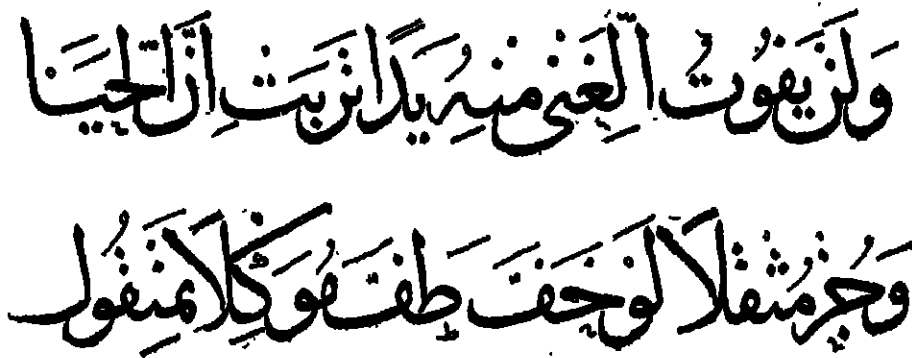 وَلَنْ يَفُوتَ الْغِنٰى مِنْهُ يَدًا تَرِبَتْ اِنَّ الْحَيَا
وَحُزْ مُثْقَلًا لَوْ خَفَّ طَفَّ مُوَكَّلًا بِمَنْقُولِ